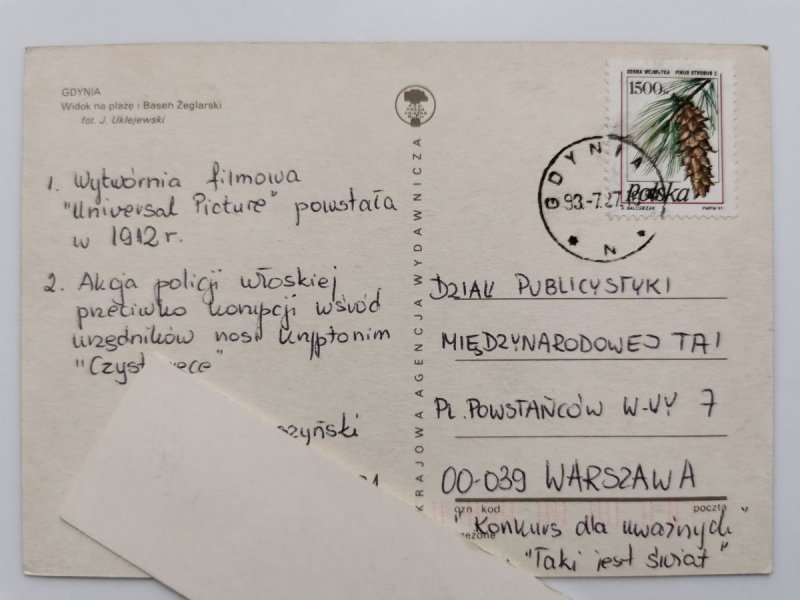 GDYNIA
Widok na plażę i Basen Żeglarski
fot. J. Uklejewski
1. Wytwórnia filmowa
"Universal Picture" powstała
w 1912 r.
2. Akcja policji włoskiej
przeciwko korupcji wśród
urzędników nosi kryptonim
"Czyst ręce"
szyński
KRAJOWA AGENCJA WYDAWNICZA
SOSNA WEJMUTKA PINUS STROBUS L.
1500 zł
Polska
PWPW
GDYNIA
93.-7.27
N
DZIAŁ PUBLICYSTYKI
MIĘDZYNARODOWEJ TAI
PL. POWSTAŃCÓW W-WY 7
00-039 WARSZAWA
ozn. kod poczta
"Konkurs dla uważnych"
"Taki jest świat"